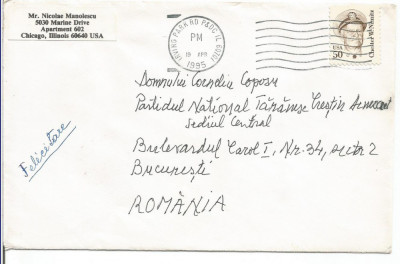 Mr. Nicolae Manolescu
5030 Marine Drive
Apartment 602
Chicago, Illinois 60640 USA
IRVING PARK RD P&DC IL 60209
PM
19 APR
1995
USA
50
Chester W. Nimitz
Domnului Corneliu Coposu
Partidul Național Țărănesc Creștin Democrat
Sediul Central
Bulevardul Carol I, Nr. 34, sector 2
București
ROMÂNIA
Felicitare